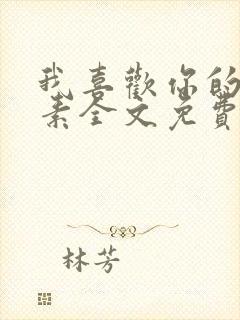 我喜歡你的
素全文免費
林芳